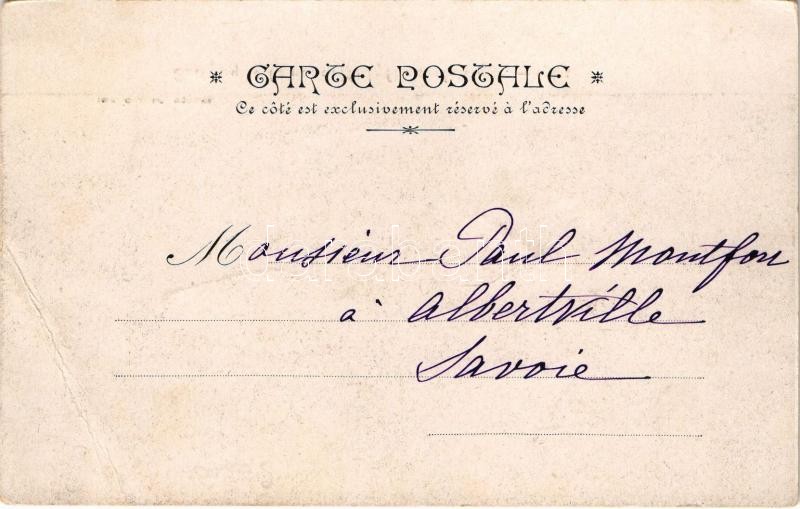 CARTE POSTALE
Ce côté est exclusivement réservé à l'adresse
Monsieur Paul Montfou
à Albertville
Savoie